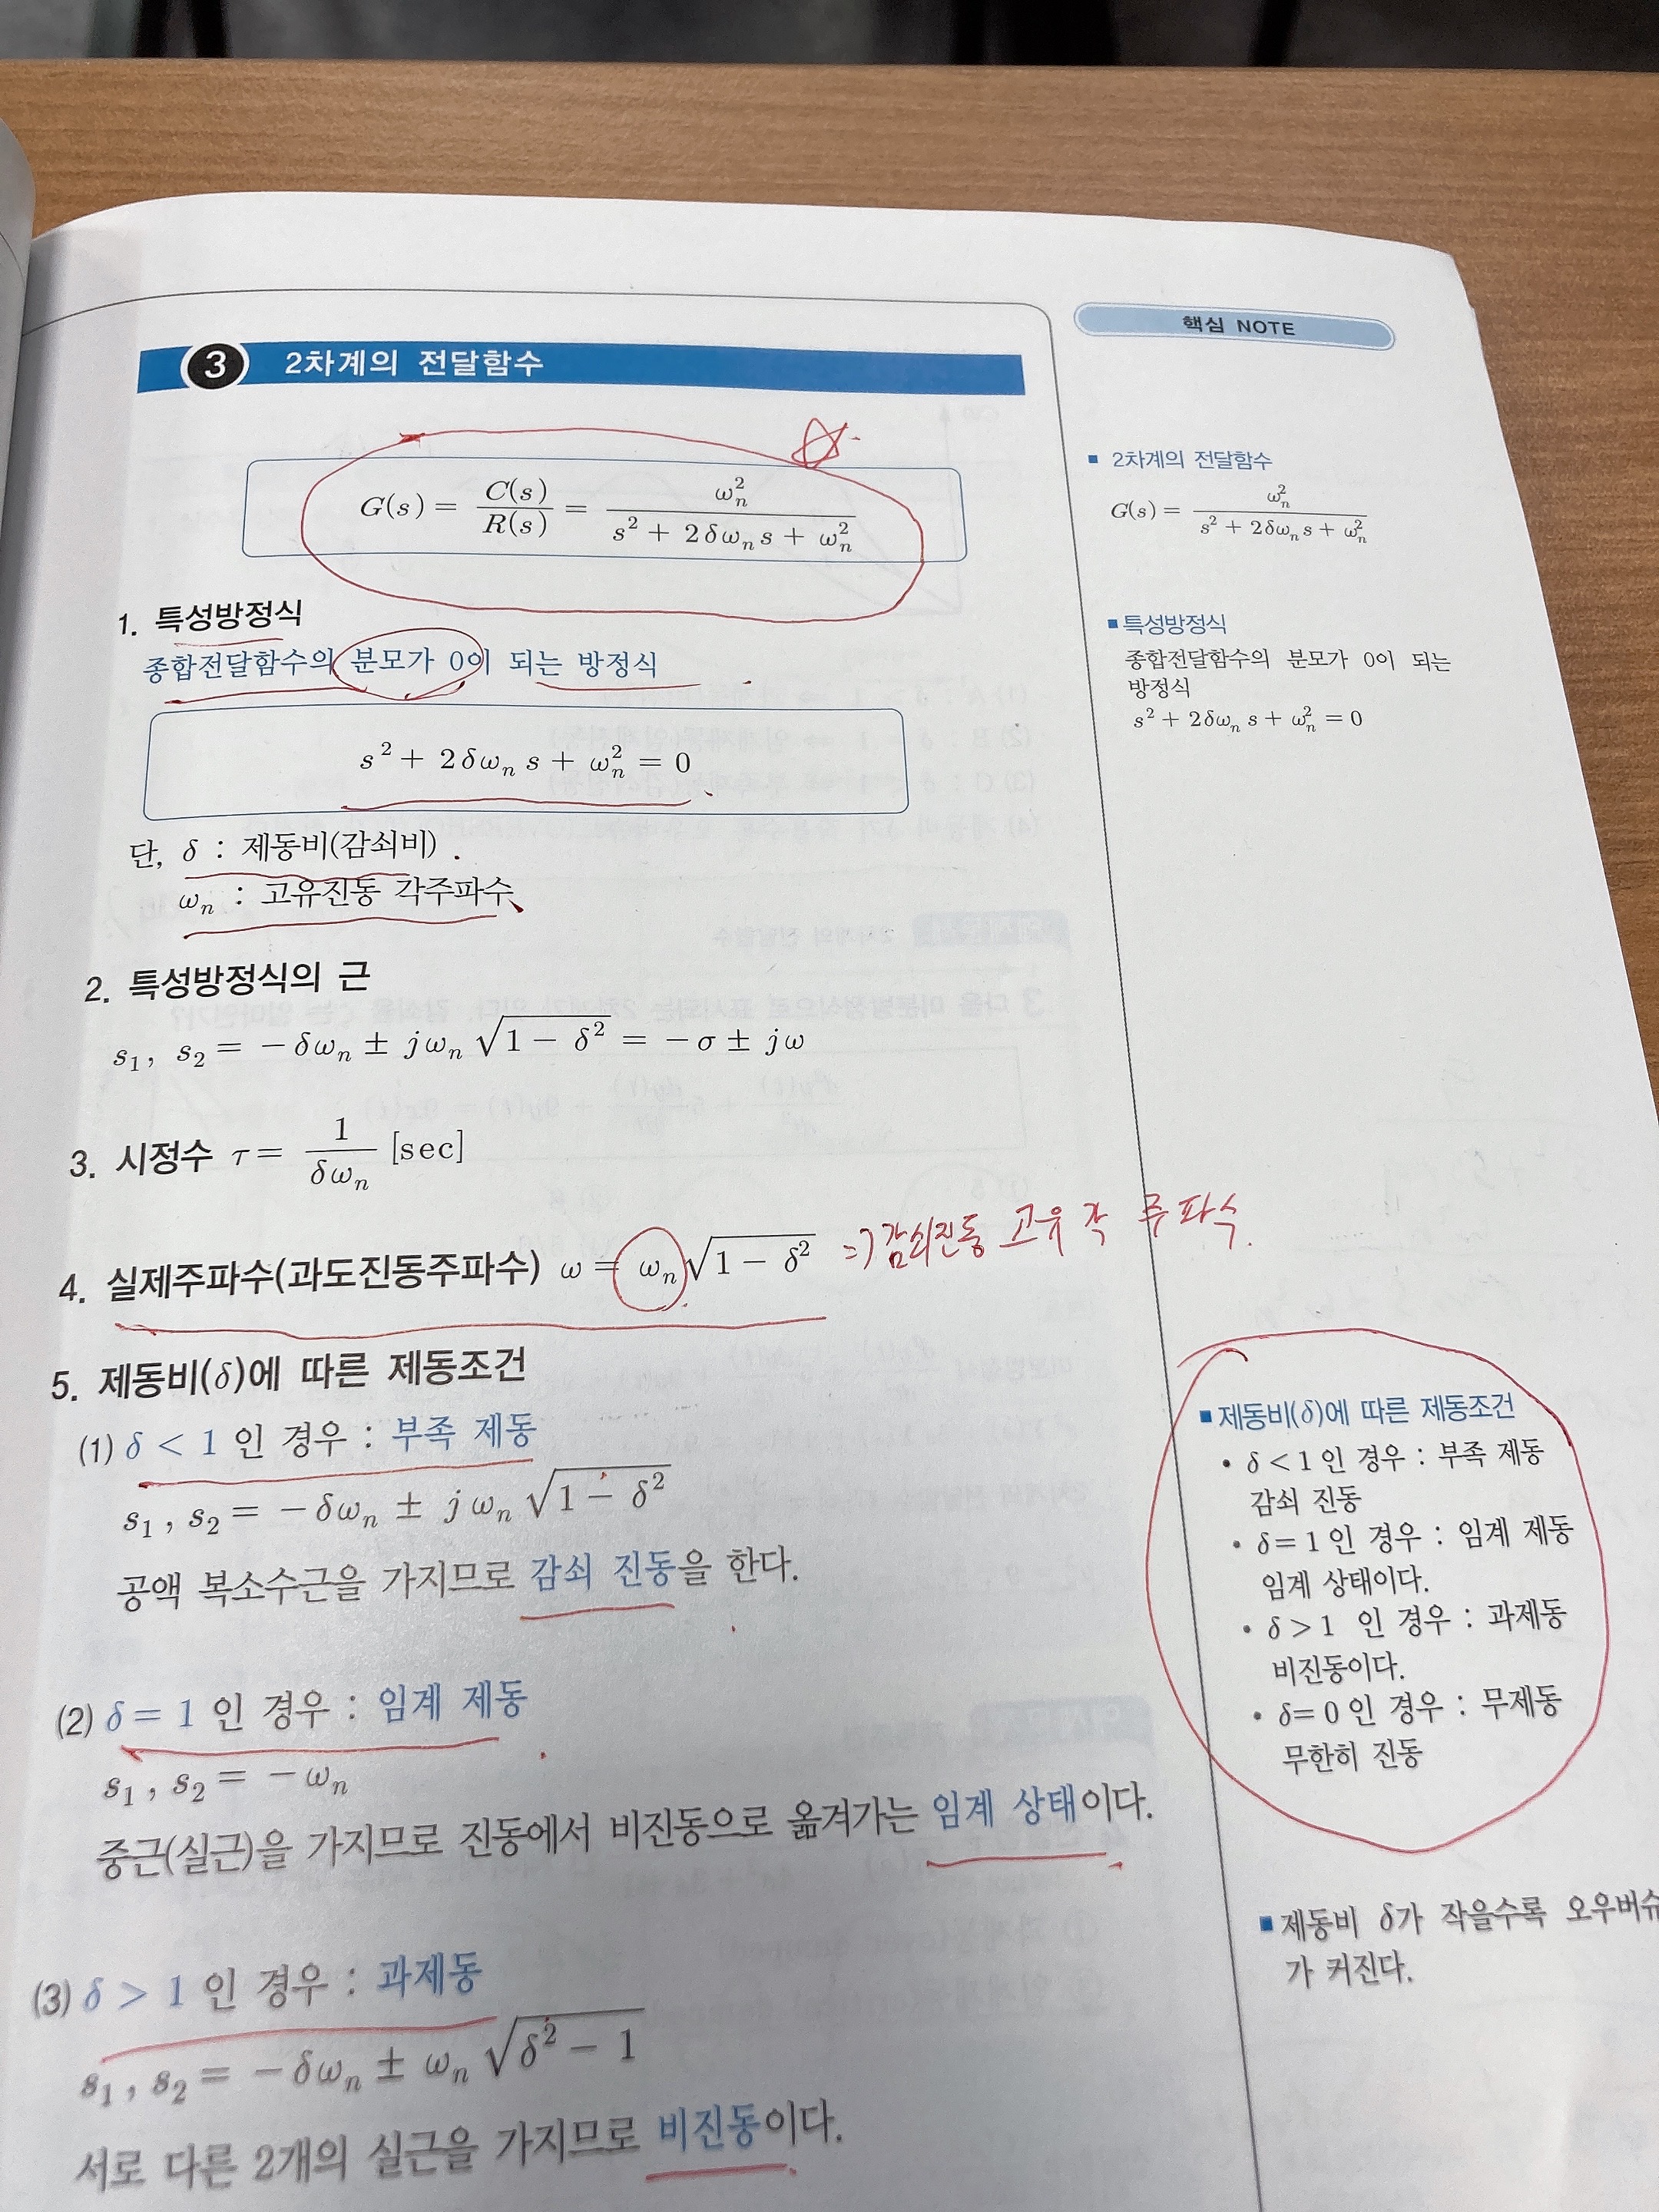 3 2차계의 전달함수
G(s) = C(s)/R(s) = ω_n^2 / (s^2 + 2δω_n s + ω_n^2)
1. 특성방정식
종합전달함수의 분모가 0이 되는 방정식
s^2 + 2δω_n s + ω_n^2 = 0
단, δ : 제동비(감쇠비)
ω_n : 고유진동 각주파수
2. 특성방정식의 근
s_1, s_2 = -δω_n ± jω_n √(1 - δ^2) = -σ ± jω
3. 시정수 τ = 1/(δω_n) [sec]
4. 실제주파수(과도진동주파수) ω = ω_n √(1 - δ^2) => 감쇠진동 고유 각 주파수.
5. 제동비(δ)에 따른 제동조건
(1) δ < 1 인 경우 : 부족 제동
s_1, s_2 = -δω_n ± jω_n √(1 - δ^2)
공액 복소수근을 가지므로 감쇠 진동을 한다.
(2) δ = 1 인 경우 : 임계 제동
s_1, s_2 = -ω_n
중근(실근)을 가지므로 진동에서 비진동으로 옮겨가는 임계 상태이다.
(3) δ > 1 인 경우 : 과제동
s_1, s_2 = -δω_n ± ω_n √(δ^2 - 1)
서로 다른 2개의 실근을 가지므로 비진동이다.
핵심 NOTE
■ 2차계의 전달함수
G(s) = ω_n^2 / (s^2 + 2δω_n s + ω_n^2)
■ 특성방정식
종합전달함수의 분모가 0이 되는
방정식
s^2 + 2δω_n s + ω_n^2 = 0
■ 제동비(δ)에 따른 제동조건
• δ < 1 인 경우 : 부족 제동
감쇠 진동
• δ = 1 인 경우 : 임계 제동
임계 상태이다.
• δ > 1 인 경우 : 과제동
비진동이다.
• δ = 0 인 경우 : 무제동
무한히 진동
■ 제동비 δ가 작을수록 오우버슈
가 커진다.